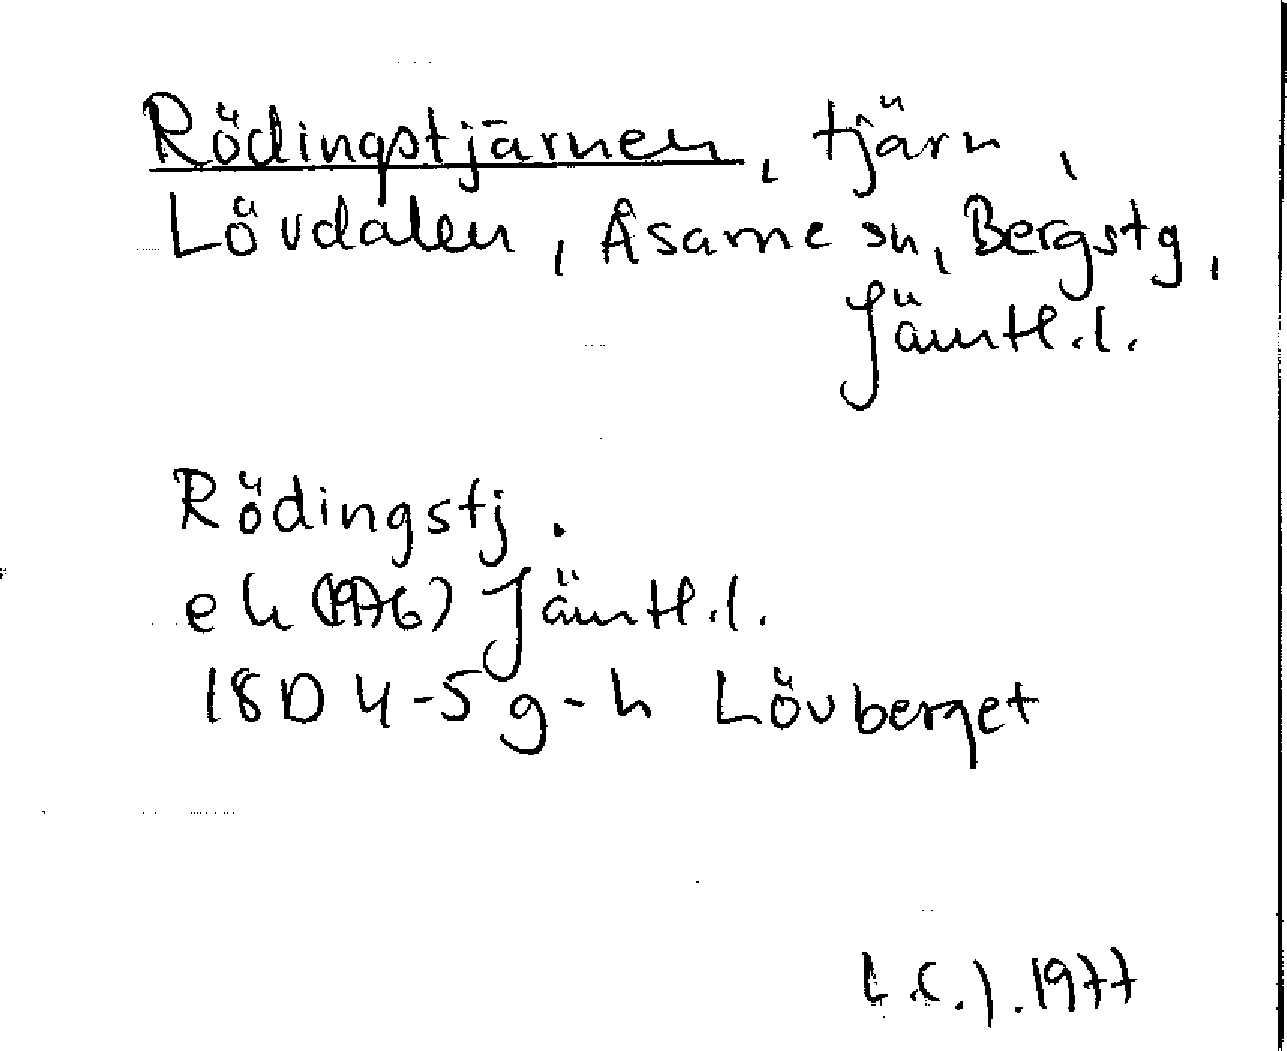 Rödingstjärnen, tjärn,
Lövdalen, Åsarne sn, Bergstg,
Jämtl.l.
Rödingstj.
ek (1976) Jämtl.l.
18D 4-5 g-h Lövberget
1977